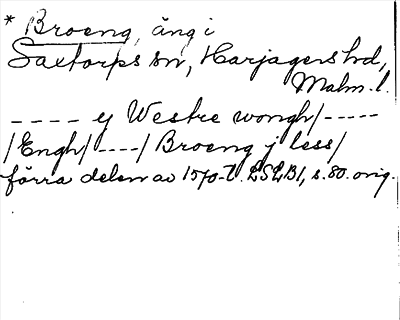 * Broeng, äng i
Saxtorps sn, Harjagers hd,
Malm. l.
---- y Westre wongh/-----
/Engh/----/ Broeng j less/
förra delen av 1570-t. LSLB1, s. 80. orig.